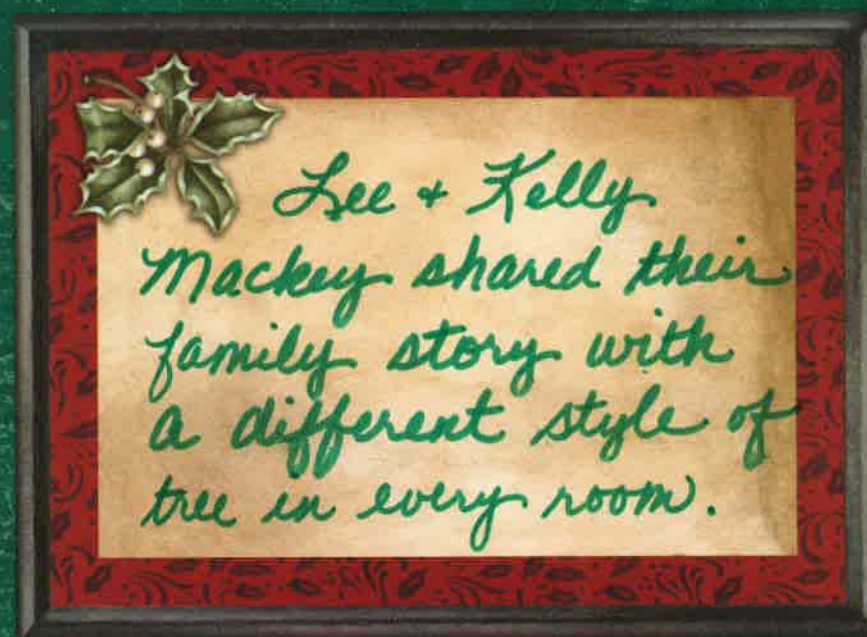 Lee + Kelly
Mackey shared their
family story with
a different style of
tree in every room.